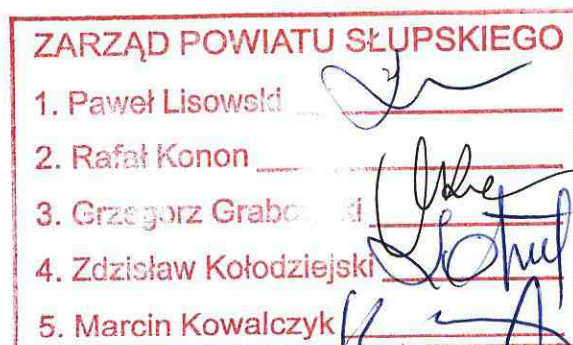 ZARZĄD POWIATU SŁUPSKIEGO
1. Paweł Lisowski
2. Rafał Konon
3. Grzegorz
4. Zdzisław Kołodziejski
5. Marcin Kowalczyk